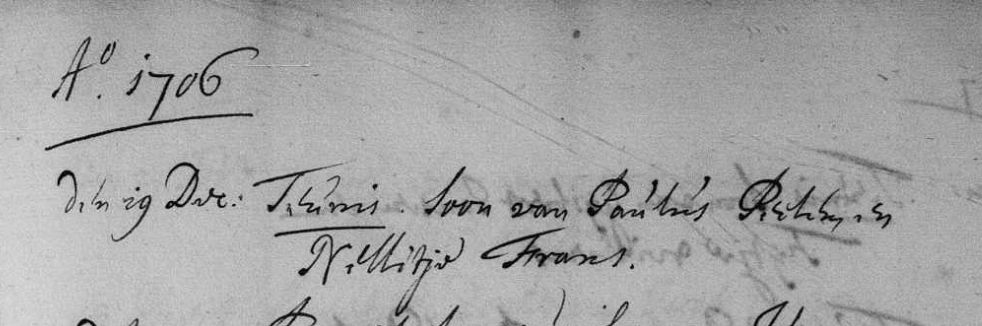 A⁰. 1706
den 19 Dec: Teunis. Soon van Paulus en
Nellitje Frans.